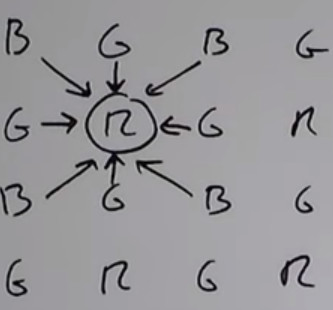 B G B G
G R G R
B G B G
G R G R